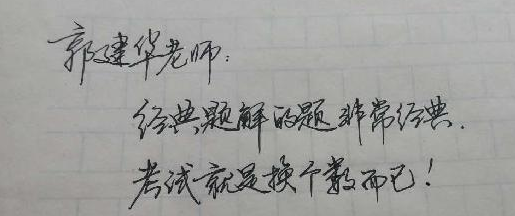 郭建华老师：
经典题解的题非常经典.
考试就是换个数而已！